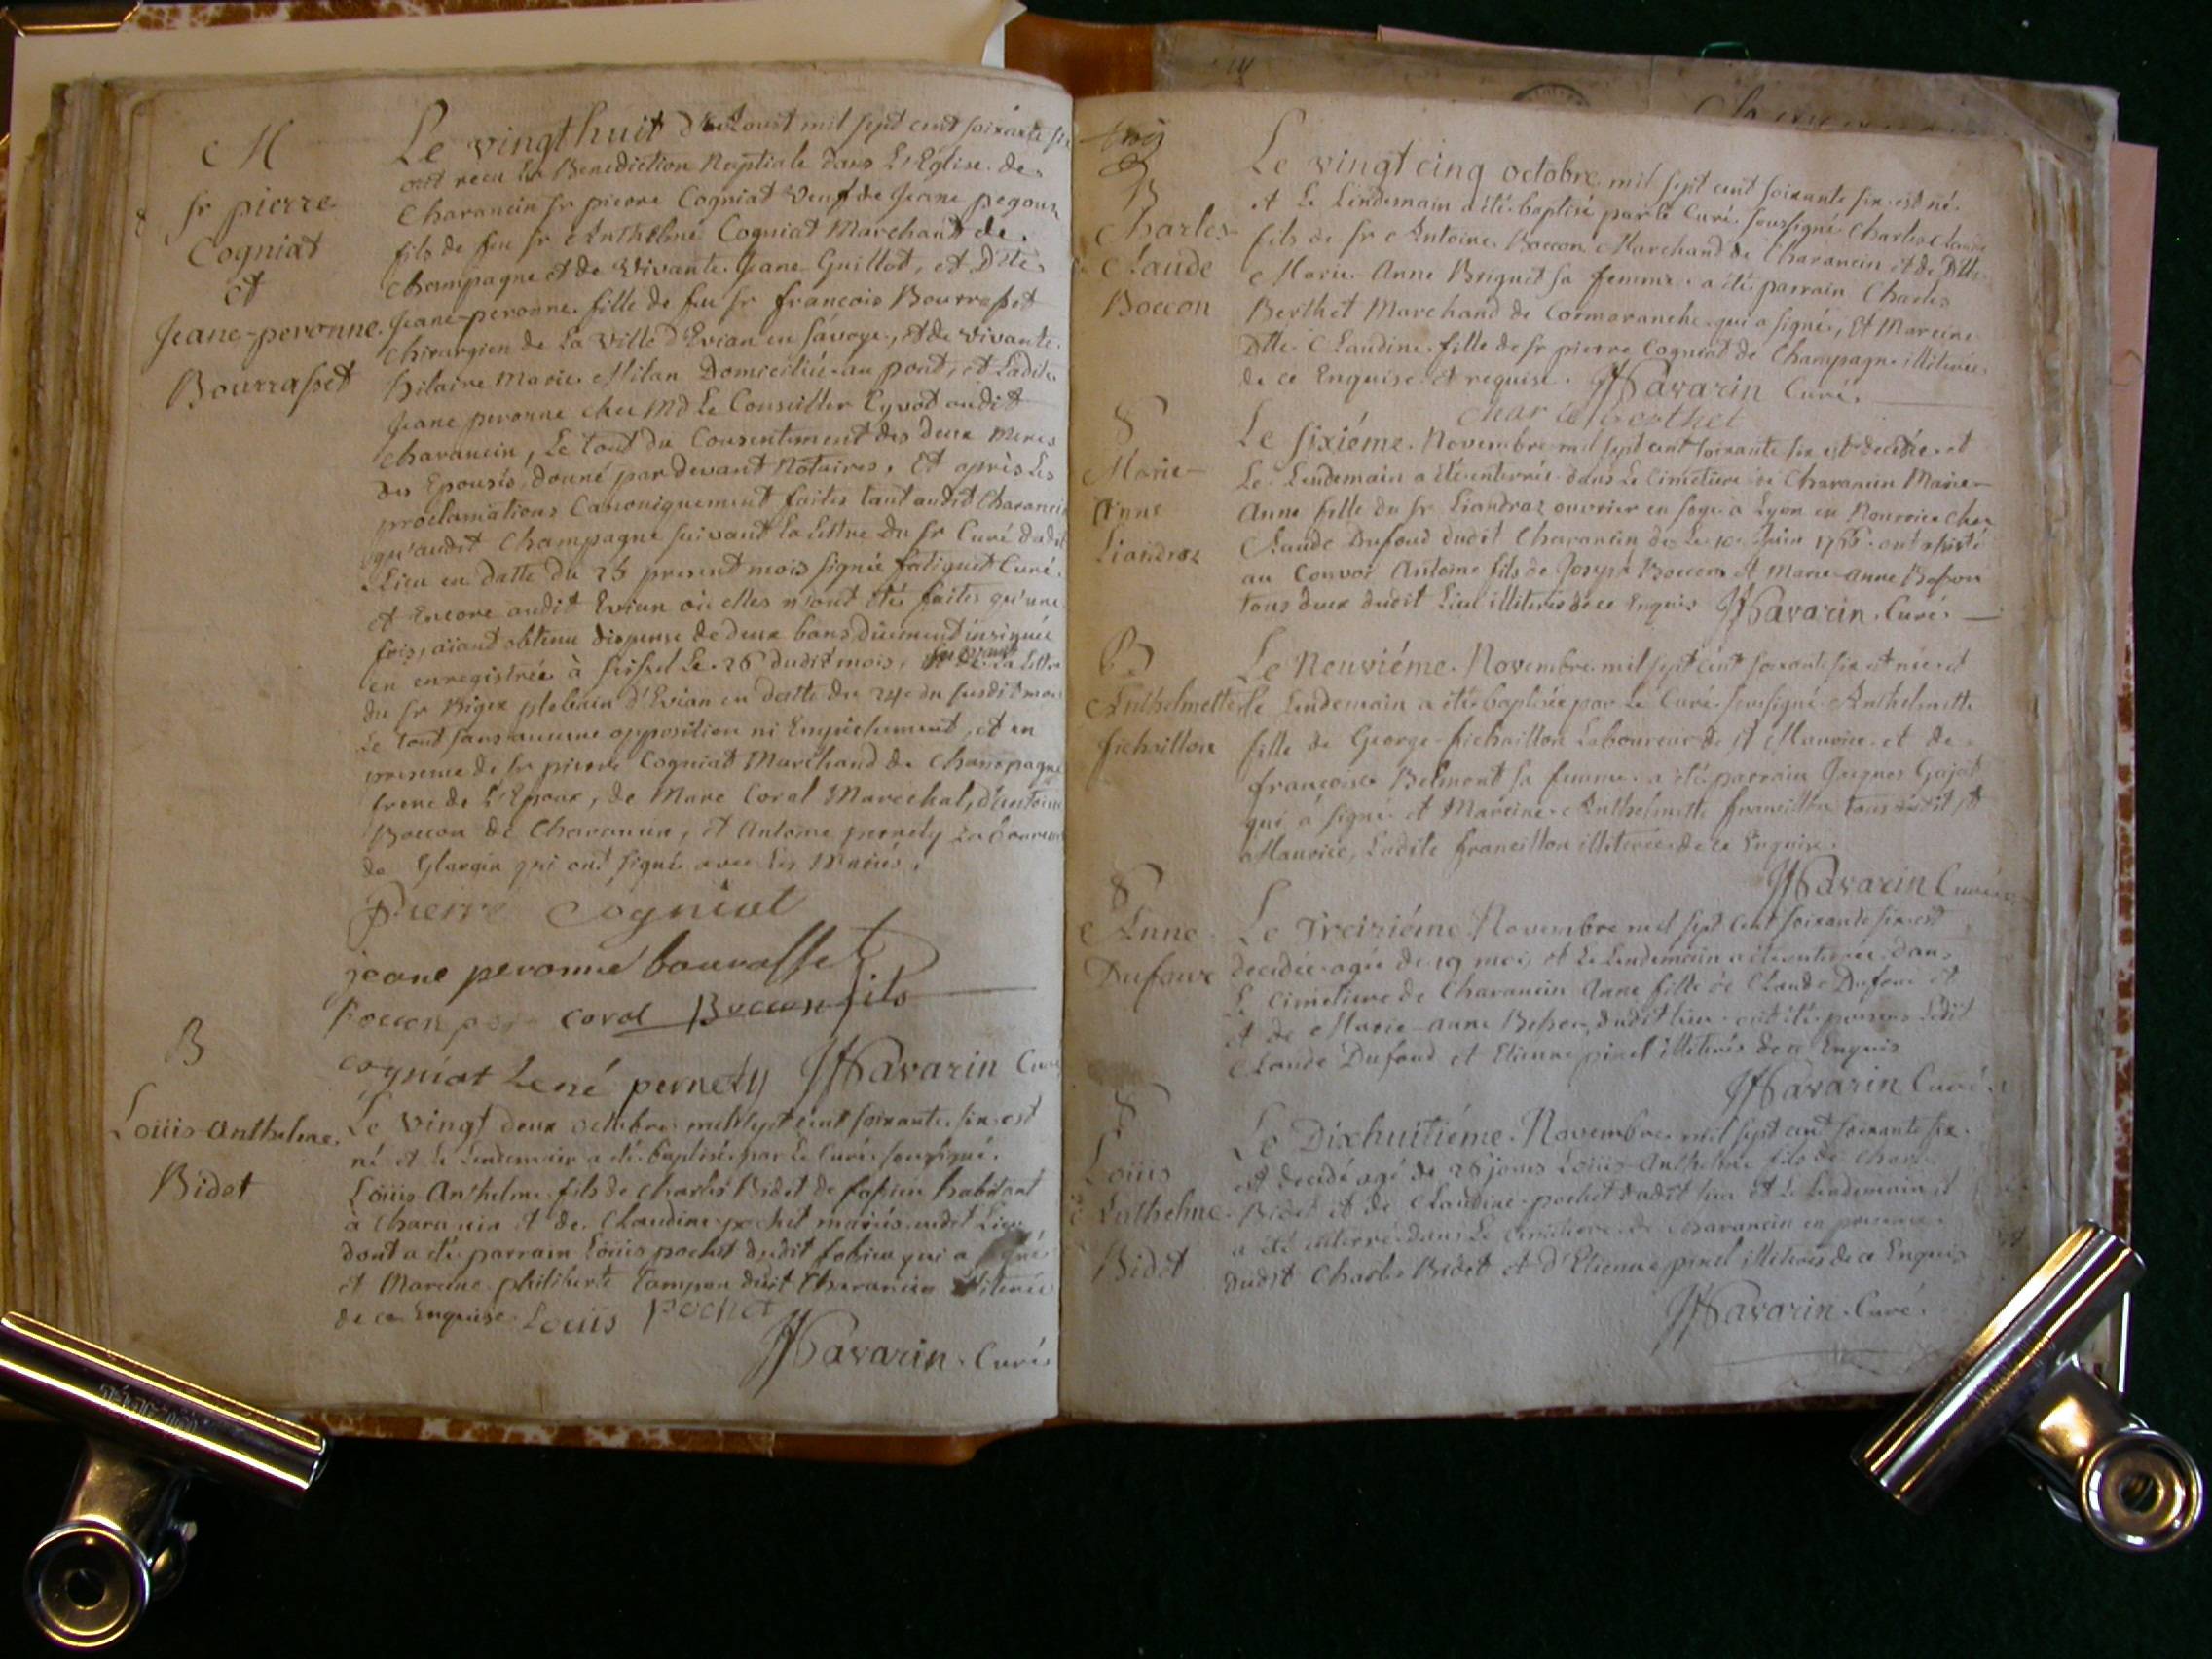 M
Sr pierre
Cogniat
et
Jeane-peronne
Bourrasset
Le vingthuit d'Aoust mil sept cent soixante six
ont recu la Benediction Nuptiale dans L'Eglise de
Charancin Sr pierre Cogniat Veuf de Jeane pegoux
fils de feu Sr Anthelme Cogniat Marchand de
Champagne et de vivante Jeane Guillot, et Dlle
Jeane-peronne fille de feu Sr francois Bourrasset
Chirurgien de La ville d'Evian en Savoye, et de vivante
hilaire Marie Milan Domiciliée au pont, et Ladite
Jeane peronne chez Md Le Conseiller Cyvot audit
Charancin, Le tout du Consentement des deux Meres
des Epousés, donné pardevant Notaires, Et après Les
proclamations Canoniquement faites tant audit Charancin
qu'audit Champagne suivant la Lettre du Sr Curé dudit
Lieu en datte du 25 present mois signé fatiguet Curé
et Encore audit Evian où elles n'ont été faites qu'une
fois, aiant obtenu dispense de deux bans düement insinuée
en enregistrée à Seissel Le 26 dudit mois, suivant la Lettre
du Sr Bigex plebain d'Evian en datte du 24e du susdit mois
Le tout sans aucune opposition ni Empechement, et en
presence de Sr pierre Cogniat Marchand de Champagne
frere de L'Epoux, de Marc Coral Marechal, d'Antoine
Boccon de Charancin, et Antoine pernety Laboureur
de Glargin qui ont signé avec Les Mariés.
Pierre Cogniat
jeane peronne bourasset
Boccon coral Boccon fils
cogniat Lené pernety JHSavarin Curé
B
Loüis-Anthelme
Bidet
Le vingt deux octobre mil sept cent soixante six est
né et Le Lendemain a été baptisé par Le Curé soussigné
Loüis-Anthelme fils de Charles Bidet de habitant
à Charancin et de Claudine pochet mariés audit Lieu
dont a été parrain Loüis pochet dudit qui a signé
et Mareine philiberte Tampon dudit Charancin illiterée
de ce Enquise. Louis pochet
JHSavarin Curé
B
Charles
Claude
Boccon
Le vingt cinq octobre mil sept cent soixante six est né
et Le Lendemain a été baptisé par le Curé soussigné Charles Claude
fils de Sr Antoine Boccon Marchand de Charancin et de Dlle
Marie-Anne Briguet sa femme a été parrain Charles
Berthet Marchand de Cormaranche qui a signé, Et Mareine
Dlle Claudine fille de Sr pierre Cogniat de Champagne illiterée
de ce Enquise et requise. JHSavarin Curé
charle berthet
S
Marie-
Anne
Liandraz
Le sixiéme Novembre mil sept cent soixante six est decedée et
Le Lendemain a été enterrée dans Le Cimetiere de Charancin Marie-
Anne fille du Sr Liandraz ouvrier en soye à Lyon en Nourrice chez
Claude Dufoud dudit Charancin dès Le 10e Juin 1766 ont assisté
au Convoi Antoine fils de Joseph Boccon et Marie-Anne Besson
tous deux dudit Lieu illiterés de ce Enquis JHSavarin Curé
B
Anthelmette
fichaillon
Le Neuviéme Novembre mil sept cent soixante six est née et
Le Lendemain a été baptisée par Le Curé soussigné Anthelmette
fille de George fichaillon Laboureur de St Maurice et de
francoise Belmont sa femme a été parrain Jaques Gojat
qui a signé et Mareine Anthelmette francillon tous dudit St
Maurice, Ladite francillon illiterée de ce Enquise.
JHSavarin Curé
S
Anne
Dufour
Le Treiziéme Novembre mil sept cent soixante six est
decedée agée de 19 mois et Le Lendemain a été enterrée dans
Le Cimetiere de Charancin Anne fille de Claude Dufour et
et de Marie-Anne Besson dudit lieu ont été presens Ledit
Claude Dufoud et Etienne pinel illiterés de ce Enquis
JHSavarin Curé
S
Loüis
Anthelme
Bidet
Le Dixhuitiéme Novembre mil sept cent soixante six
est decedé agé de 26 jours Loüis-Anthelme fils de Charles
Bidet et de Claudine pochet dudit lieu et Le Lendemain il
a été enterré dans Le Cimetiere de Charancin en presence
dudit Charles Bidet et d'Etienne pinel illiterés de ce Enquis
JHSavarin Curé.